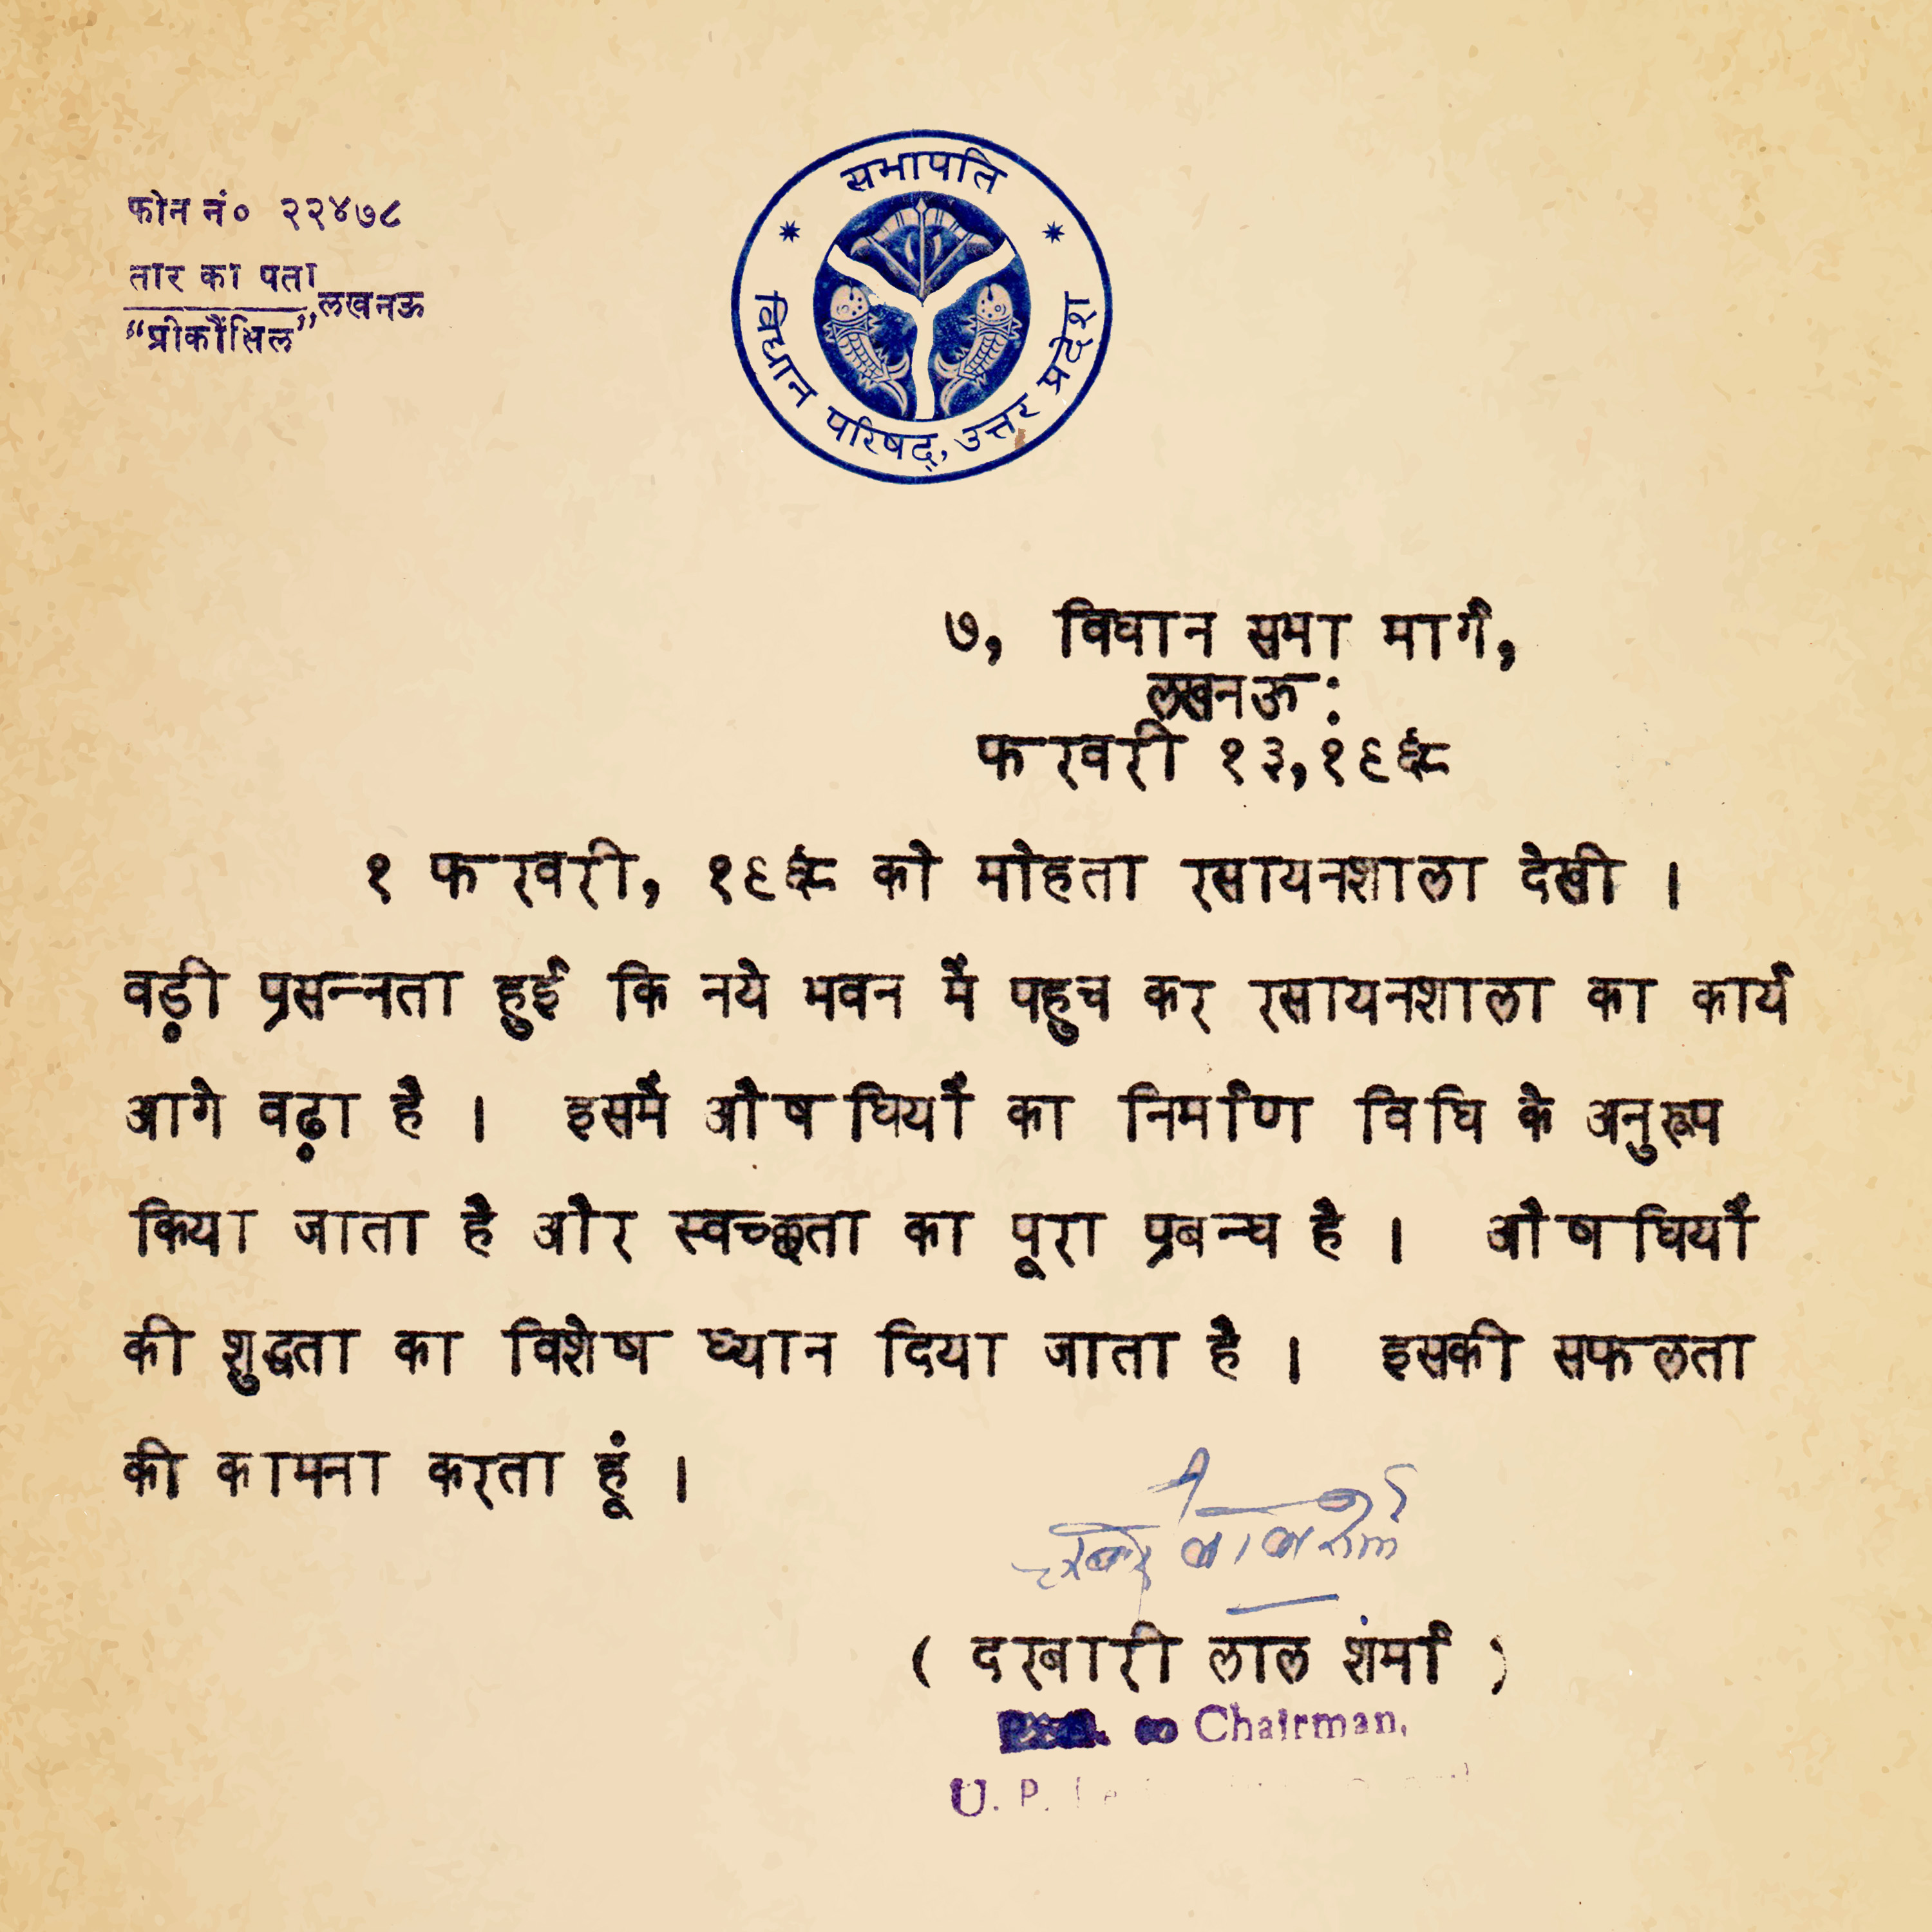 फोन नं० २२४७८
तार का पता
"प्रीकौंसिल" लखनऊ
सभापति
विधान परिषद्, उत्तर प्रदेश
७, विधान सभा मार्ग,
लखनऊ :
फरवरी १३,१९६८
१ फरवरी, १९६८ को मोहता रसायनशाला देखी ।
वड़ी प्रसन्नता हुई कि नये भवन में पहुच कर रसायनशाला का कार्य
आगे वढ़ा है । इसमें औषधियों का निर्माण विधि के अनुरूप
किया जाता है और स्वच्छता का पूरा प्रबन्ध है । औषधियों
की शुद्धता का विशेष ध्यान दिया जाता है । इसकी सफलता
की कामना करता हूं ।
( दरबारी लाल शंर्मा )
Chairman,
U. P.